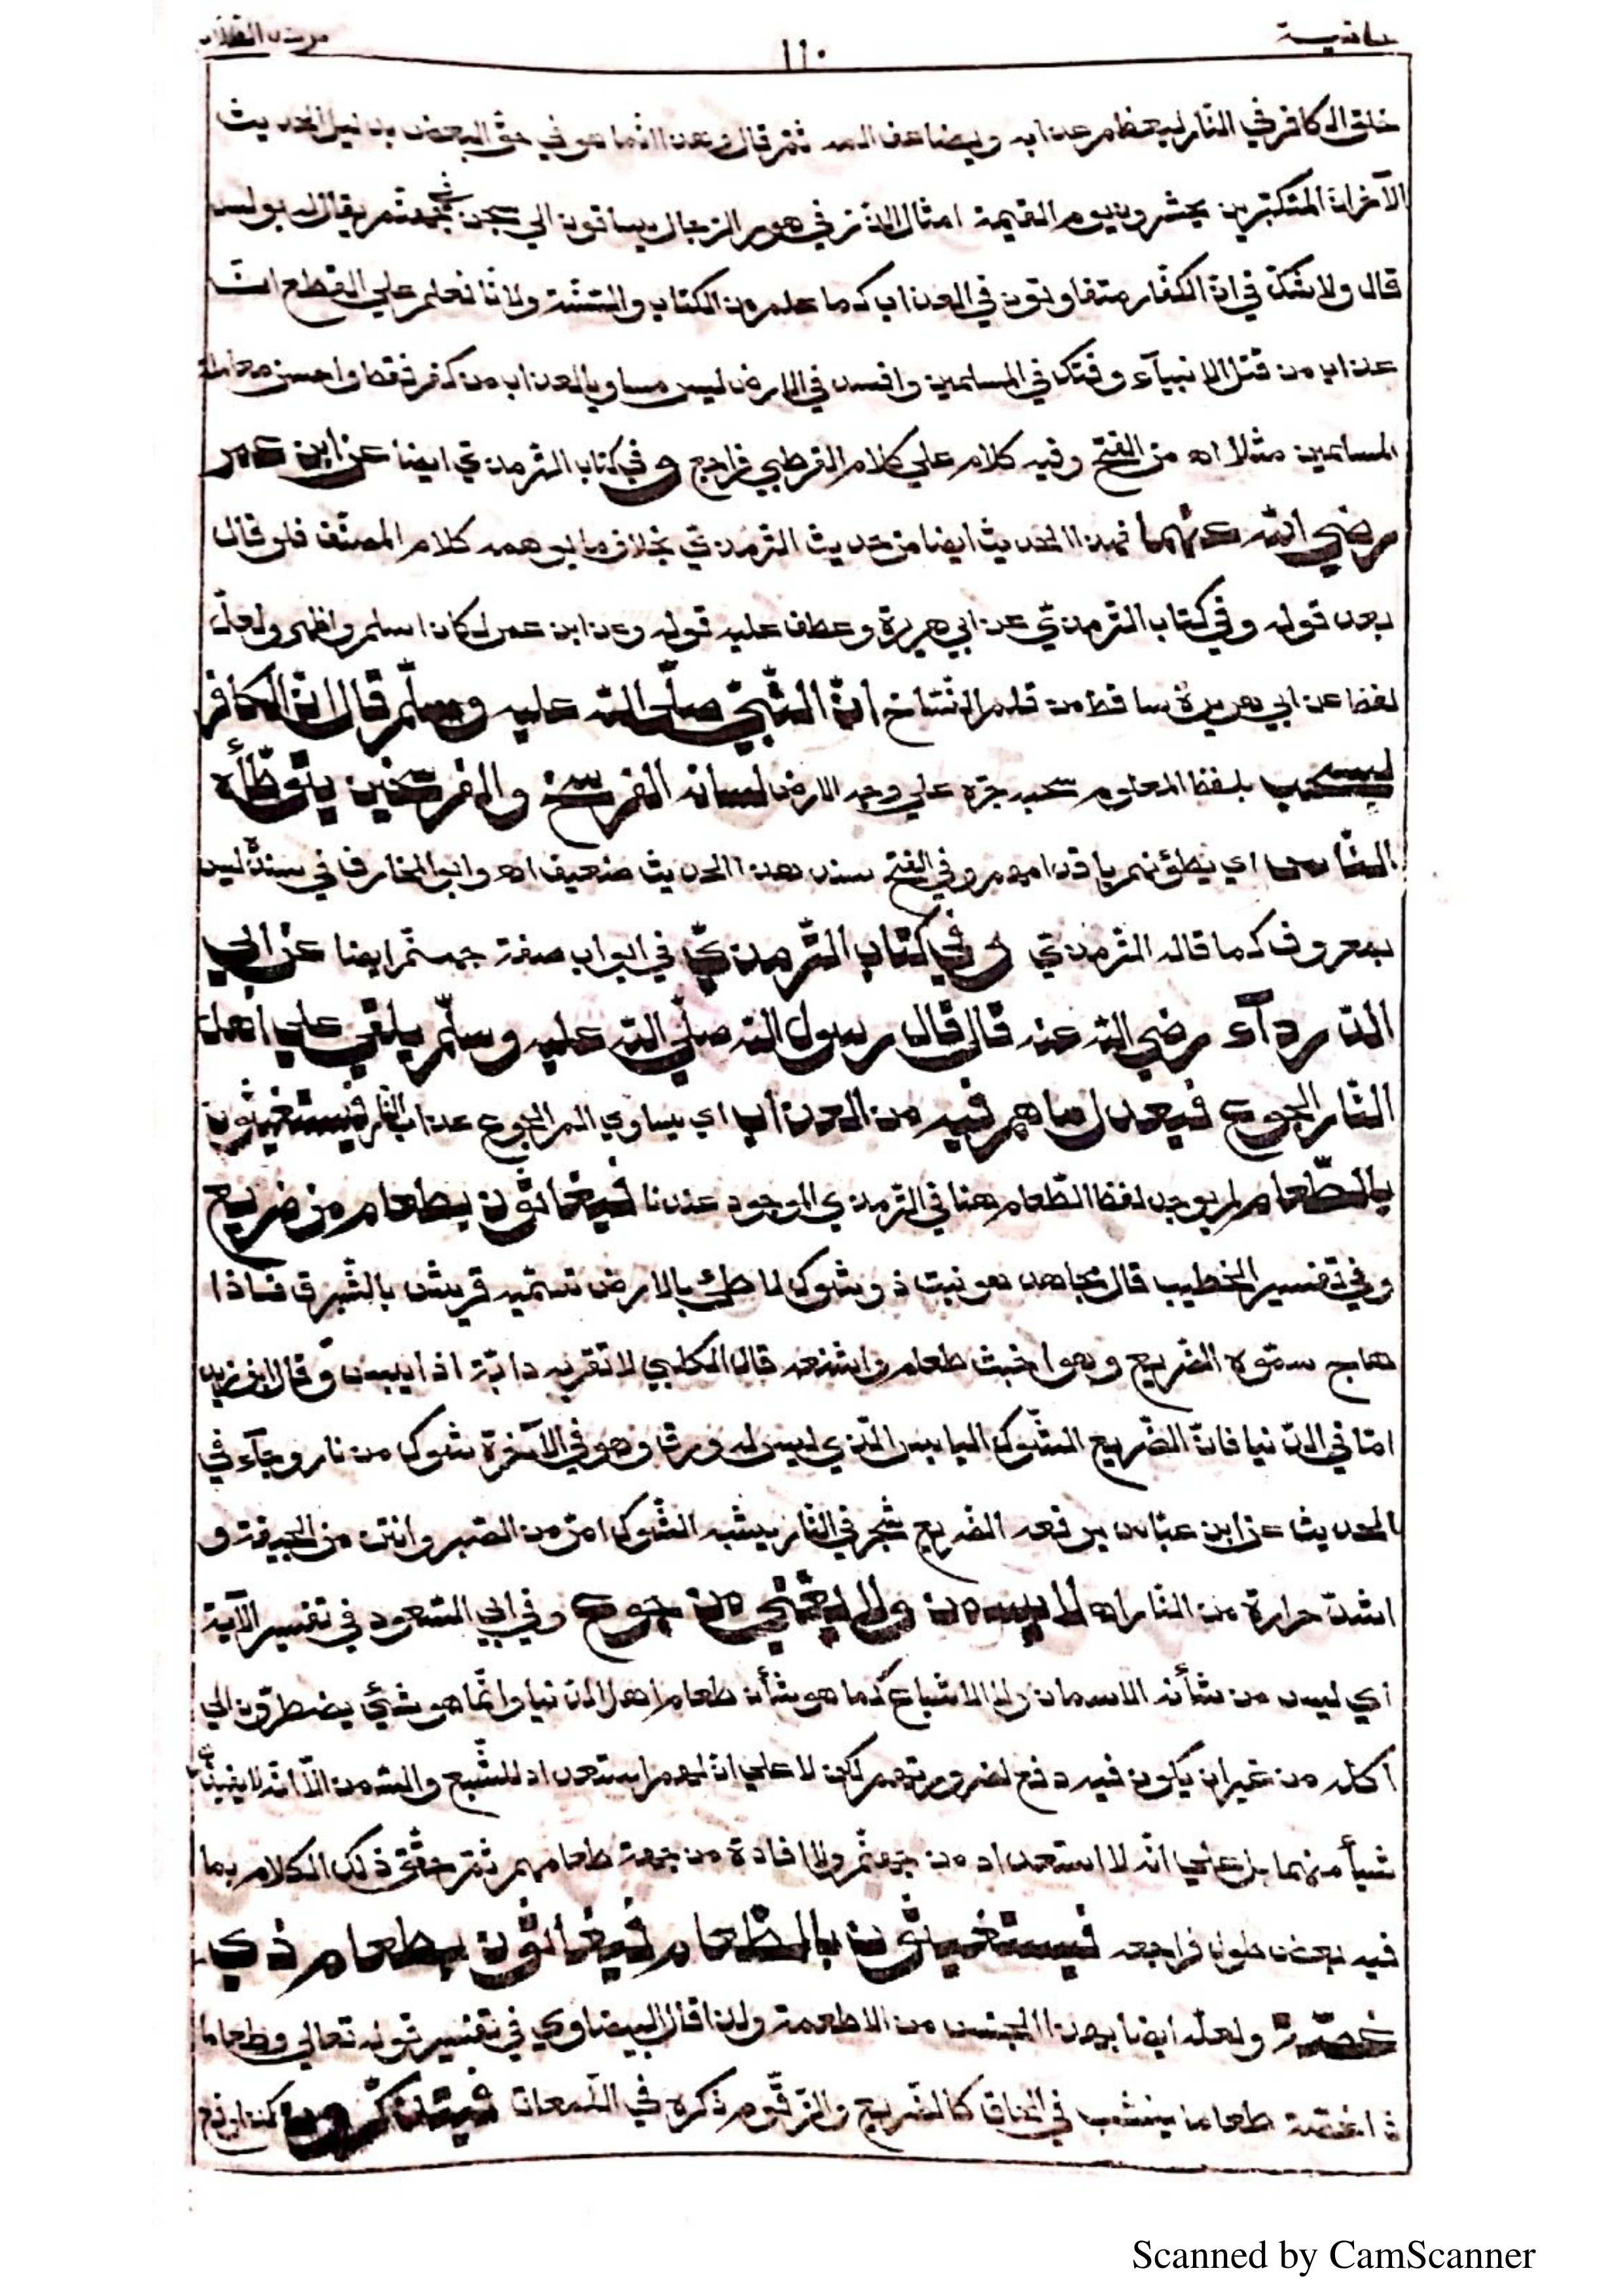 حاشية ١١٠ مرشد الطلاب
خلق الكافر في النار ليعظم عذابه وليضاعف المه ثم قال وهذا انما هو في حق البعض بدليل الحديث
الآخر ان المتكبرين يحشرون يوم القيمة امثال الذر في صور الرجال يساقون الي سجن في جهنم يقال له بولس
قال ولا شك في ان الكفار متفاوتون في العذاب كما علم من الكتاب والسنة ولانا نعلم علي القطع ان
عذاب من قتل الانبيآء وفتك في المسلمين وافسد في الارض ليس مساويا لعذاب من كفر فقط واحسن معاملة
المسلمين مثلا اه من الفتح وفيه كلام علي كلام القرطبي فراجع وفي كتاب الترمذي ايضا عن ابن عمر
رضي الله عنهما فهذا الحديث ايضا من حديث الترمذي بخلاف ما يوهمه كلام المصنف فلو قال
بعد قوله وفي كتاب الترمذي عن ابي هريرة وعطف عليه قوله وعن ابن عمر لكان اسلم واظهر ولعل
لفظ عن ابي هريرة ساقط من قلم النساخ ان النبي صلي الله عليه وسلم قال ان الكافر
ليسحب بلفظ المعلوم سحبه جره علي وجه الارض لسانه الفرسخ والفرسخين يتوطأه
الناس اي يطؤنهم باقدامهم وفي الفتح سند هذا الحديث ضعيف اه وابو المخارق في سنده ليس
بمعروف كما قاله الترمذي وفي كتاب الترمذي في ابواب صفة جهنم ايضا عن ابي
الدردآء رضي الله عنه قال قال رسول الله صلي الله عليه وسلم يلقي علي اهل
النار الجوع فيعدل ما هم فيه من العذاب اي يساوي الم الجوع عذاب النار فيستغيثون
بالطعام لم يوجد لفظ الطعام هنا في الترمذي الموجود عندنا فيغاثون بطعام من ضريع
وفي تفسير الخطيب قال مجاهد هو نبت ذو شوك لاطئ بالارض تسميه قريش بالشبرق فاذا
هاج سموه الضريع وهو اخبث طعام واشنعه قال الكلبي لا تقربه دابة اذا يبس وقال ابن زيد
اما في الدنيا فان الضريع الشوك اليابس الذي ليس له ورق وهو في الآخرة شوك من نار وجآء في
الحديث عن ابن عباس يرفعه الضريع شجر في النار يشبه الشوك امر من الصبر وانتن من الجيفة و
اشد حرارة من النار اه لا يسمن ولا يغني من جوع وفي ابي السعود في تفسير الآية
اي ليس من شأنه الاسمان ولا الاشباع كما هو شأن طعام اهل الدنيا وانما هو شيئ يضطرون الي
اكله من غير ان يكون فيه دفع لضرورتهم لكن لا علي ان لهم استعداد للشبع والسمن الا انه لا يفيد
شيأ منهما بل علي انه لا استعداد من جهتهم ولا افادة من جهة طعامهم ثم حقق ذلك الكلام بما
فيه بعض طول فراجعه فيستغيثون بالطعام فيغاثون بطعام ذي
غصة ولعله ايضا بهذا الجنس من الاطعمة ولذا قال البيضاوي في تفسير قوله تعالي وطعاما
ذا غصة طعاما ينشب في الحلق كالضريع والزقوم ذكره في اللمعات فيذكرون
Scanned by CamScanner